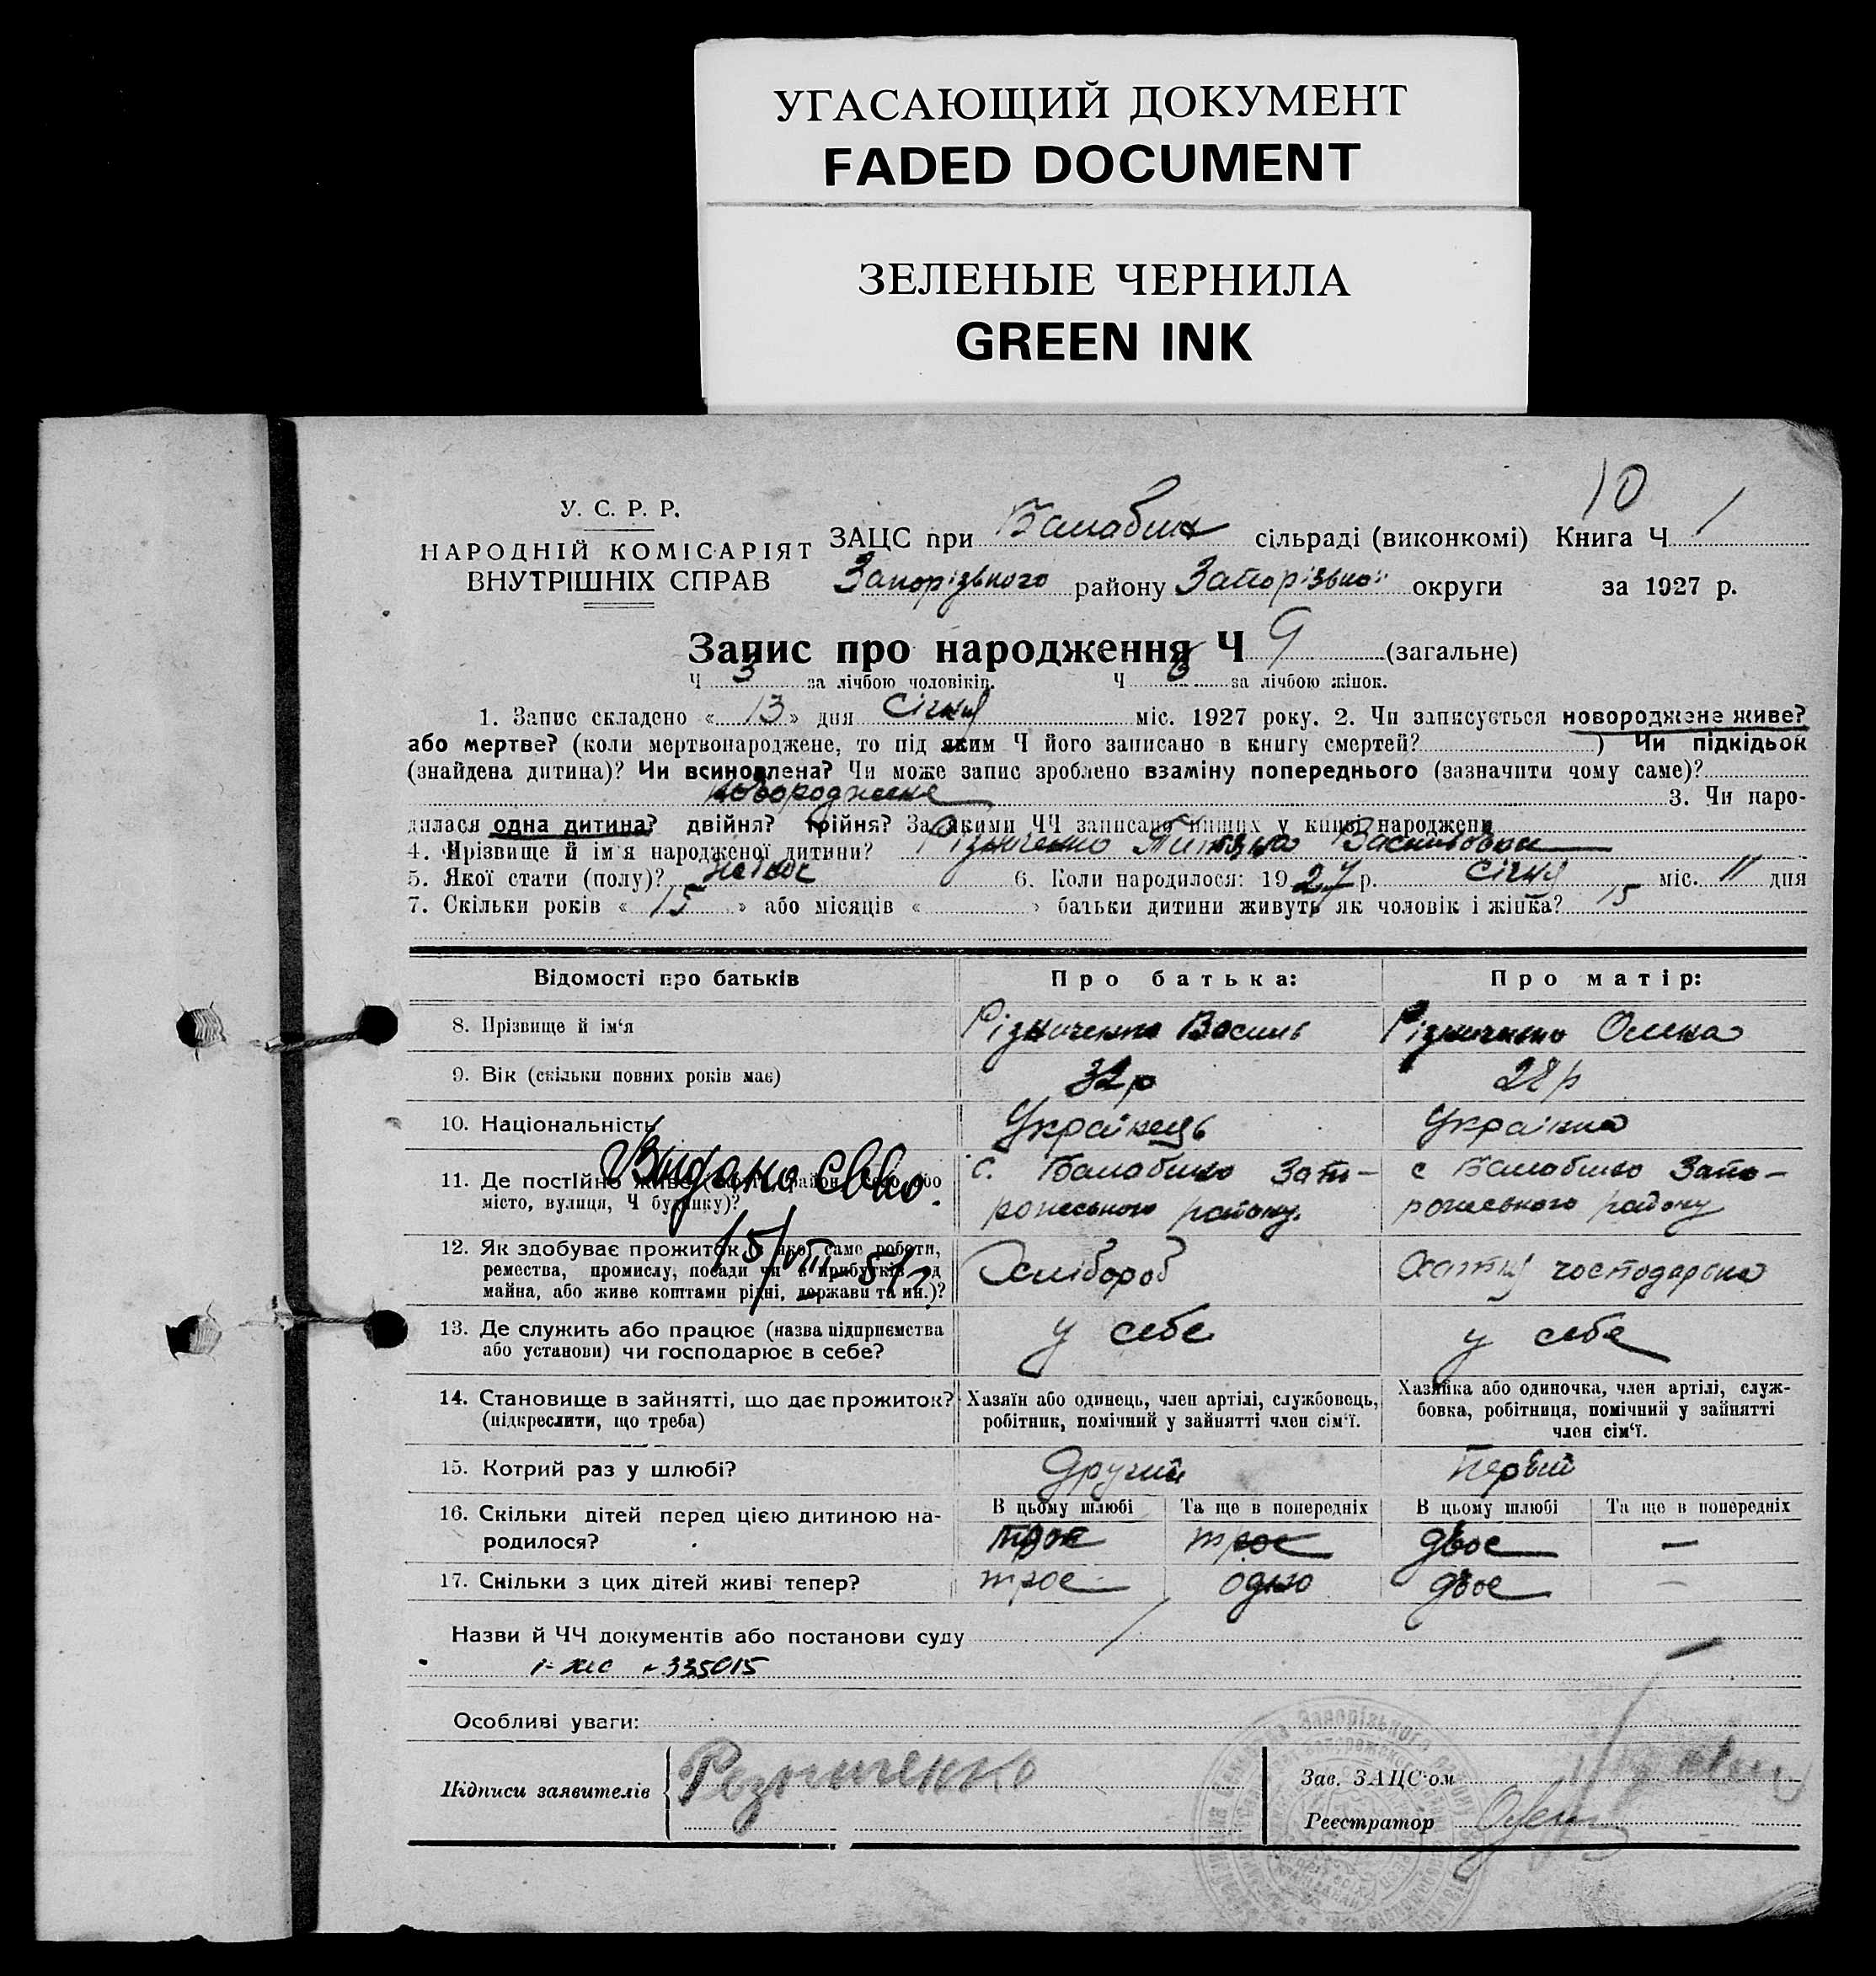 УГАСАЮЩИЙ ДОКУМЕНТ
FADED DOCUMENT
ЗЕЛЕНЫЕ ЧЕРНИЛА
GREEN INK
10
У. С. Р. Р.
НАРОДНІЙ КОМІСАРІЯТ
ВНУТРІШНІХ СПРАВ
ЗАЦС при Балабин сільраді (виконкомі) Книга Ч 1
Запорізького району Запорізької округи за 1927 р.
Запис про народження Ч 9 (загальне)
Ч 3 за лічбою чоловіків. Ч 6 за лічбою жінок.
1. Запис складено « 13 » дня Січня міс. 1927 року. 2. Чи записується новороджене живе?
або мертве? (коли мертвонароджене, то під яким Ч його записано в книгу смертей? ) Чи підкідьок
(знайдена дитина)? Чи всиновлена? Чи може запис зроблено взаміну попереднього (зазначити чому саме)?
новороджене 3. Чи наро-
дилася одна дитина? двійня? трійня? За якими ЧЧ записано инших у книзі народжень
4. Прізвище й ім'я народженої дитини? Різниченко Васильовна
5. Якої стати (полу)? 6. Коли народилося: 1927 р. Січня міс. 11 дня
7. Скільки років « 15 » або місяців « » батьки дитини живуть як чоловік і жінка? 15
Відомості про батьків Про батька: Про матір:
8. Прізвище й ім'я Різниченко Василь Різниченко Олена
9. Вік (скільки повних років має) 32 р 28 р
10. Національність Українець Українка
Видано Св-во.
15/VIII-51 г
11. Де постійно живе (округа, район, село або
місто, вулиця, Ч будинку)?
с. Балабино Запо-
рожського району.
с Балабино Запо-
рожського району
12. Як здобуває прожиток з якої саме роботи,
ремества, промислу, посади чи з прибутків од
майна, або живе коштами рідні, держави та ин.)?
Хлібороб
Хатня господарька
13. Де служить або працює (назва підприємства
або установи) чи господарює в себе?
у себе у себе
14. Становище в зайнятті, що дає прожиток?
(підкреслити, що треба)
Хазяїн або одинець, член артілі, службовець,
робітник, помічний у зайнятті член сім'ї.
Хазяйка або одиночка, член артілі, служ-
бовка, робітниця, помічний у зайнятті
член сім'ї.
15. Котрий раз у шлюбі? Другий Первий
16. Скільки дітей перед цією дитиною на-
родилося?
В цьому шлюбі Та ще в попередніх В цьому шлюбі Та ще в попередніх
троє троє двоє —
17. Скільки з цих дітей живі тепер? троє одно двоє —
Назви й ЧЧ документів або постанови суду
335015
Особливі уваги:
Підписи заявителів Резниченко
Зав. ЗАЦС'ом
Реєстратор